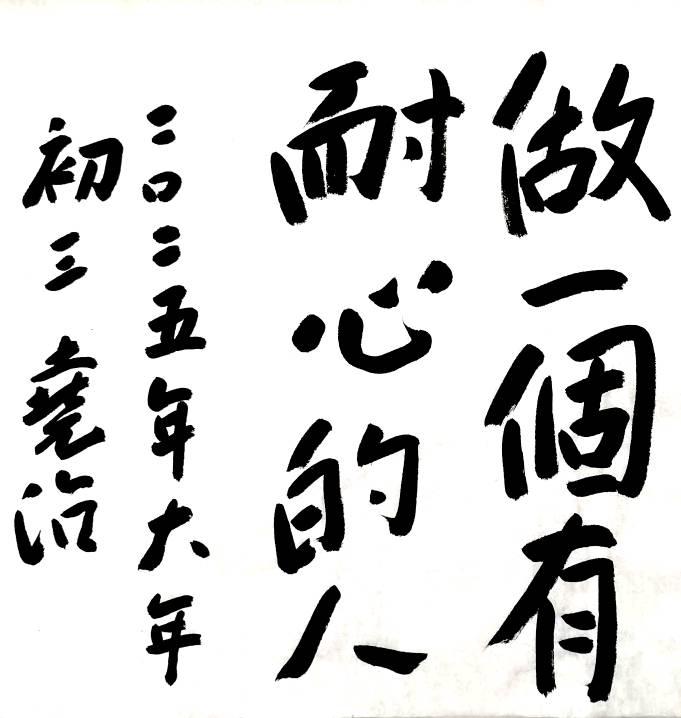 做一個有
耐心的人
二〇二五年大年
初三堯治